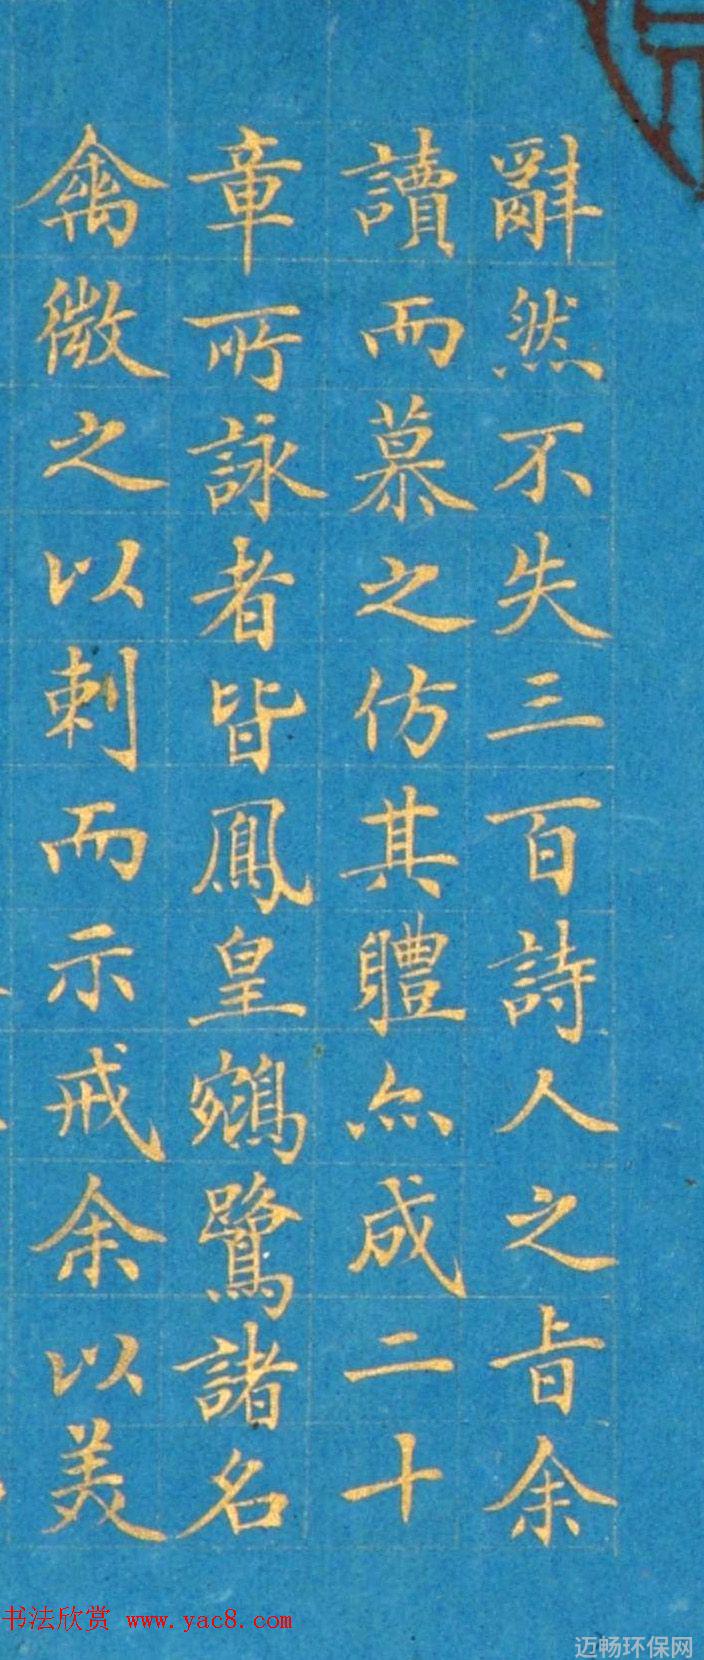 辭然不失三百詩人之旨余
讀而慕之仿其體亦成二十
章所詠者皆鳳皇鵷鷺諸名
禽微之以刺而示戒余以美
书法欣赏 www.yac8.com
迈畅环保网